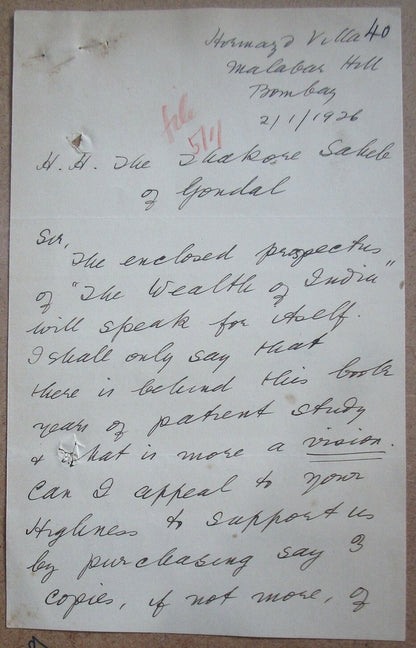 Hormazd Villa 40
Malabar Hill
Bombay
2/1/1926
file
5/1/
H. H. The Thakore Saheb
of Gondal
Sir,
The enclosed prospectus
of "The Wealth of India"
will speak for itself.
I shall only say that
there is behind this book
years of patient study
& what is more a vision.
Can I appeal to your
Highness to support us
by purchasing say 3
copies, if not more, of